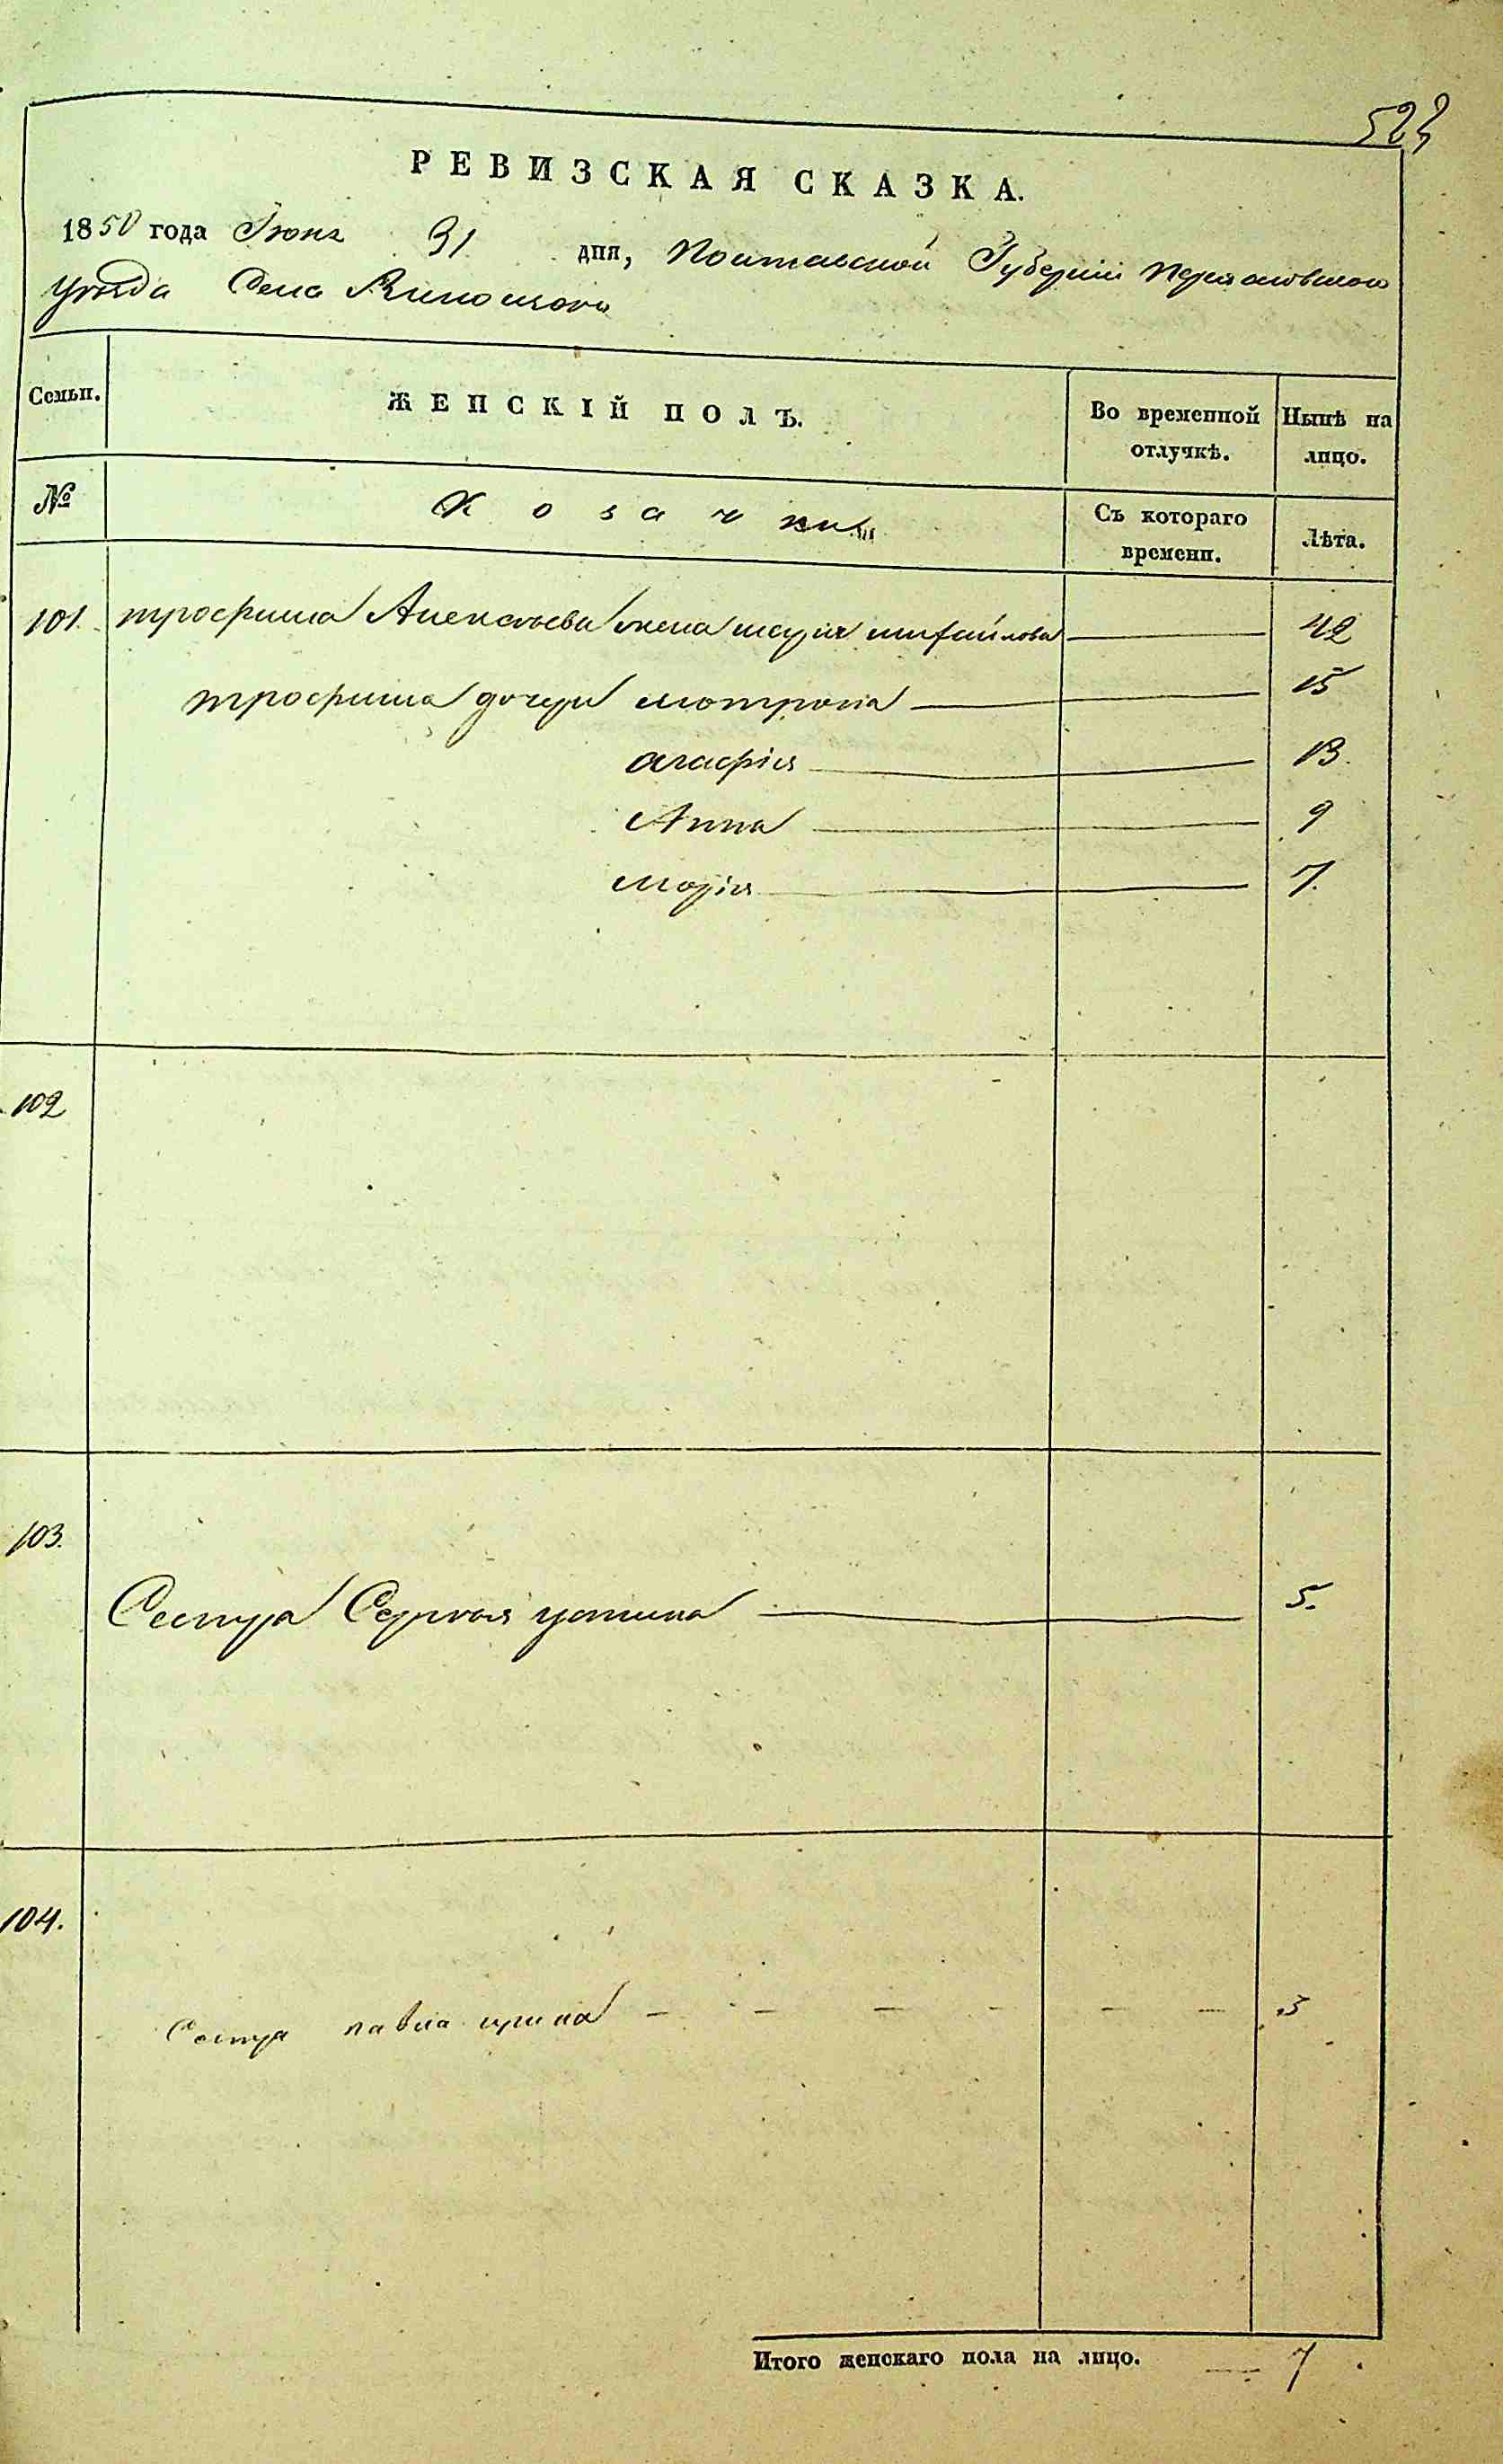 523
РЕВИЗСКАЯ СКАЗКА.
1850 года Июня 31 дня, Полтавской Губерніи
уезда Села
Семьи. ЖЕНСКІЙ ПОЛЪ. Во временной отлучкѣ. Нынѣ на лицо.
№ Козачки Съ котораго времени. Лѣта.
101. трофима Алексѣева жена марія михайлова 42
трофима дочери мотрона 15
агафія 13.
Анна 9
марія 7.
102
103.
Сестра Сергея устина 5.
104.
Сестра павла ирина 3
Итого женскаго пола на лицо. 7